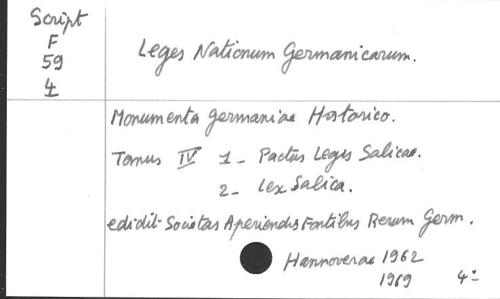 Script
F
59
4
Leges Nationum Germanicarum.
Monumenta Germaniae Historico.
Tomus IV 1_ Pactus Legis Salicae.
2_ Lex Salica.
edidit Societas Aperiendis Fontibus Rerum Germ.
Hannoverae 1962
1969 4º